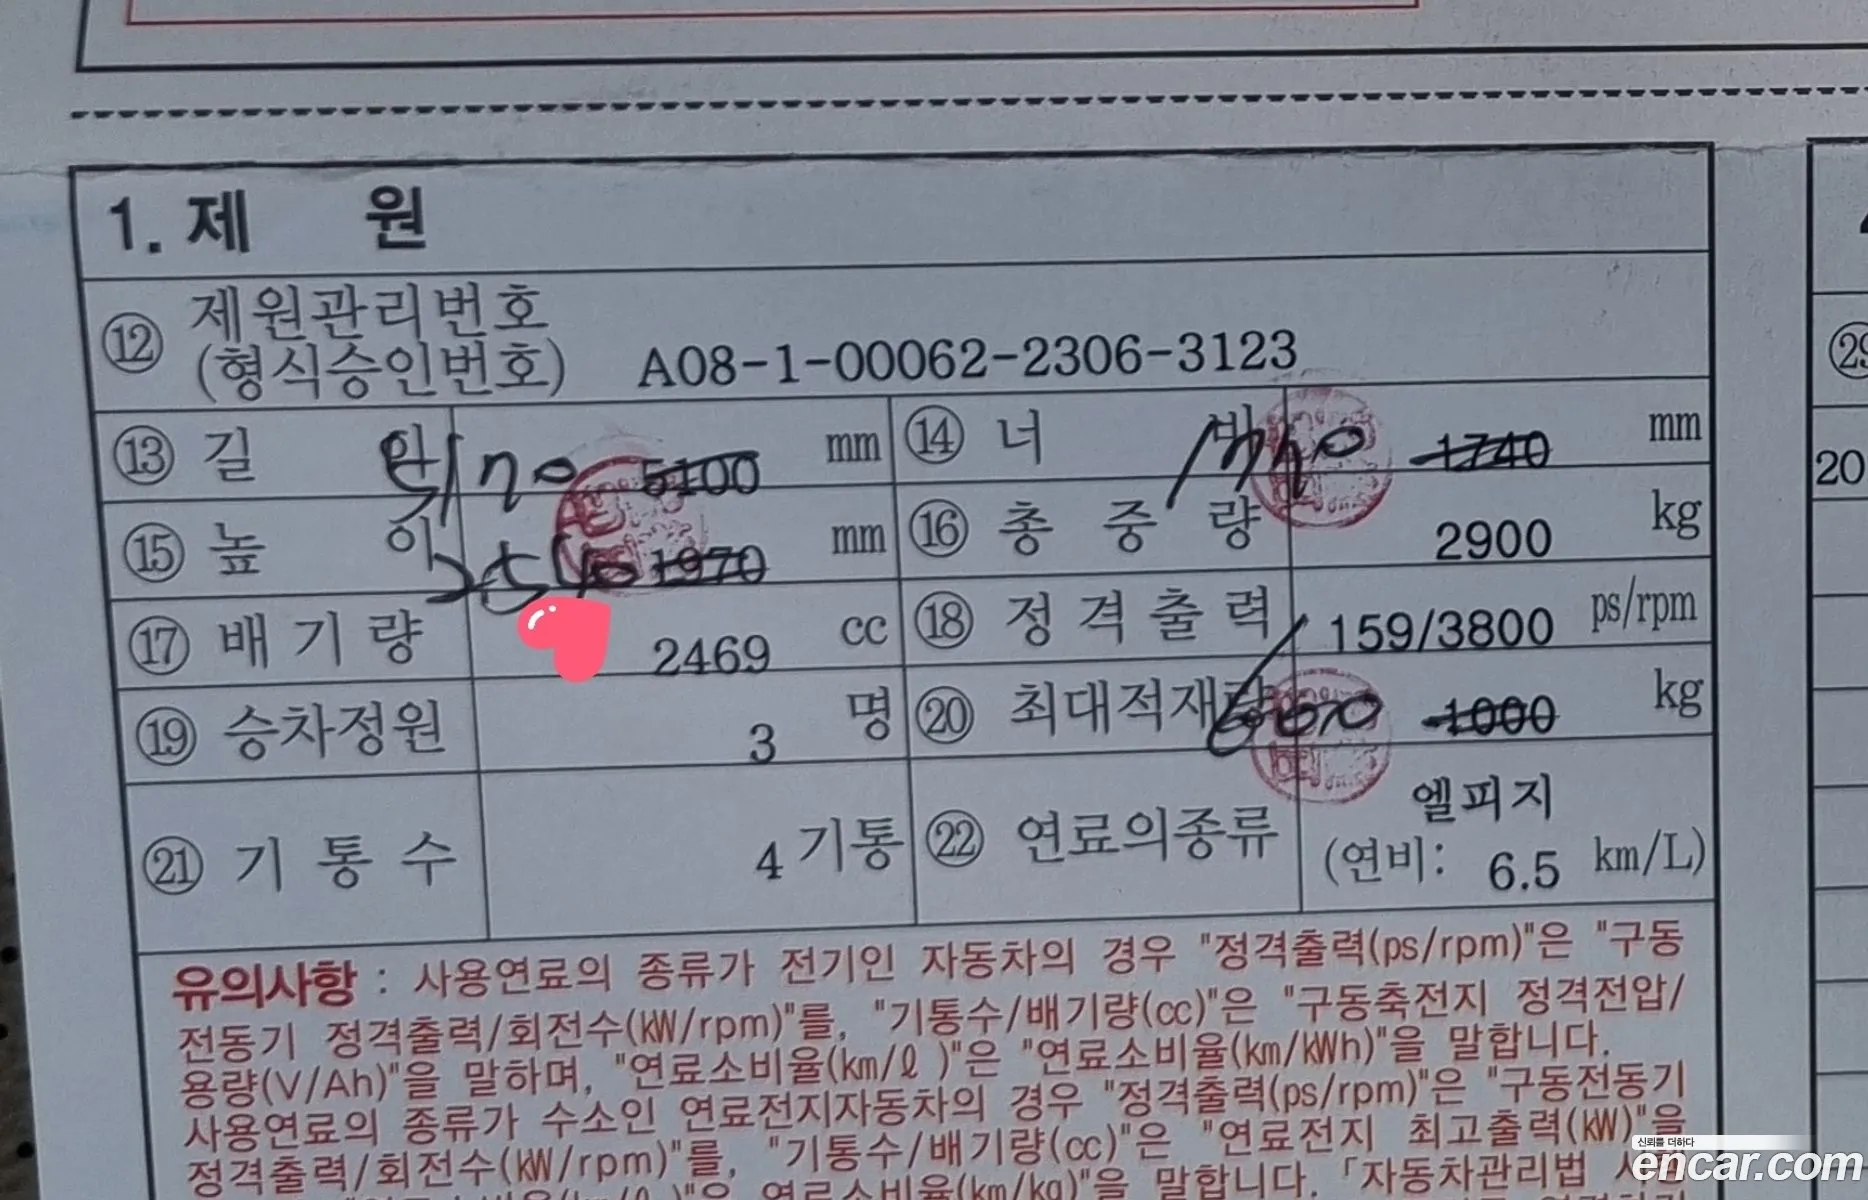 1. 제 원
⑫ 제원관리번호
(형식승인번호) A08-1-00062-2306-3123
⑬ 길 이 5170 5100 mm ⑭ 너 비 1740 mm
⑮ 높 이 2540 1970 mm ⑯ 총 중 량 2900 kg
⑰ 배 기 량 2469 cc ⑱ 정 격 출 력 159/3800 ps/rpm
⑲ 승차정원 3 명 ⑳ 최대적재량 1000 kg
㉑ 기 통 수 4 기통 ㉒ 연료의종류 엘피지
(연비: 6.5 km/L)
유의사항 : 사용연료의 종류가 전기인 자동차의 경우 "정격출력(ps/rpm)"은 "구동
전동기 정격출력/회전수(kW/rpm)"를, "기통수/배기량(cc)"은 "구동축전지 정격전압/
용량(V/Ah)"을 말하며, "연료소비율(km/ℓ )"은 "연료소비율(km/kWh)"을 말합니다.
사용연료의 종류가 수소인 연료전지자동차의 경우 "정격출력(ps/rpm)"은 "구동전동기
정격출력/회전수(kW/rpm)"를, "기통수/배기량(cc)"은 "연료전지 최고출력(kW)"을
"연료소비율(km/kg)"을 말합니다. 「자동차관리법
20
신뢰를 더하다
encar.com